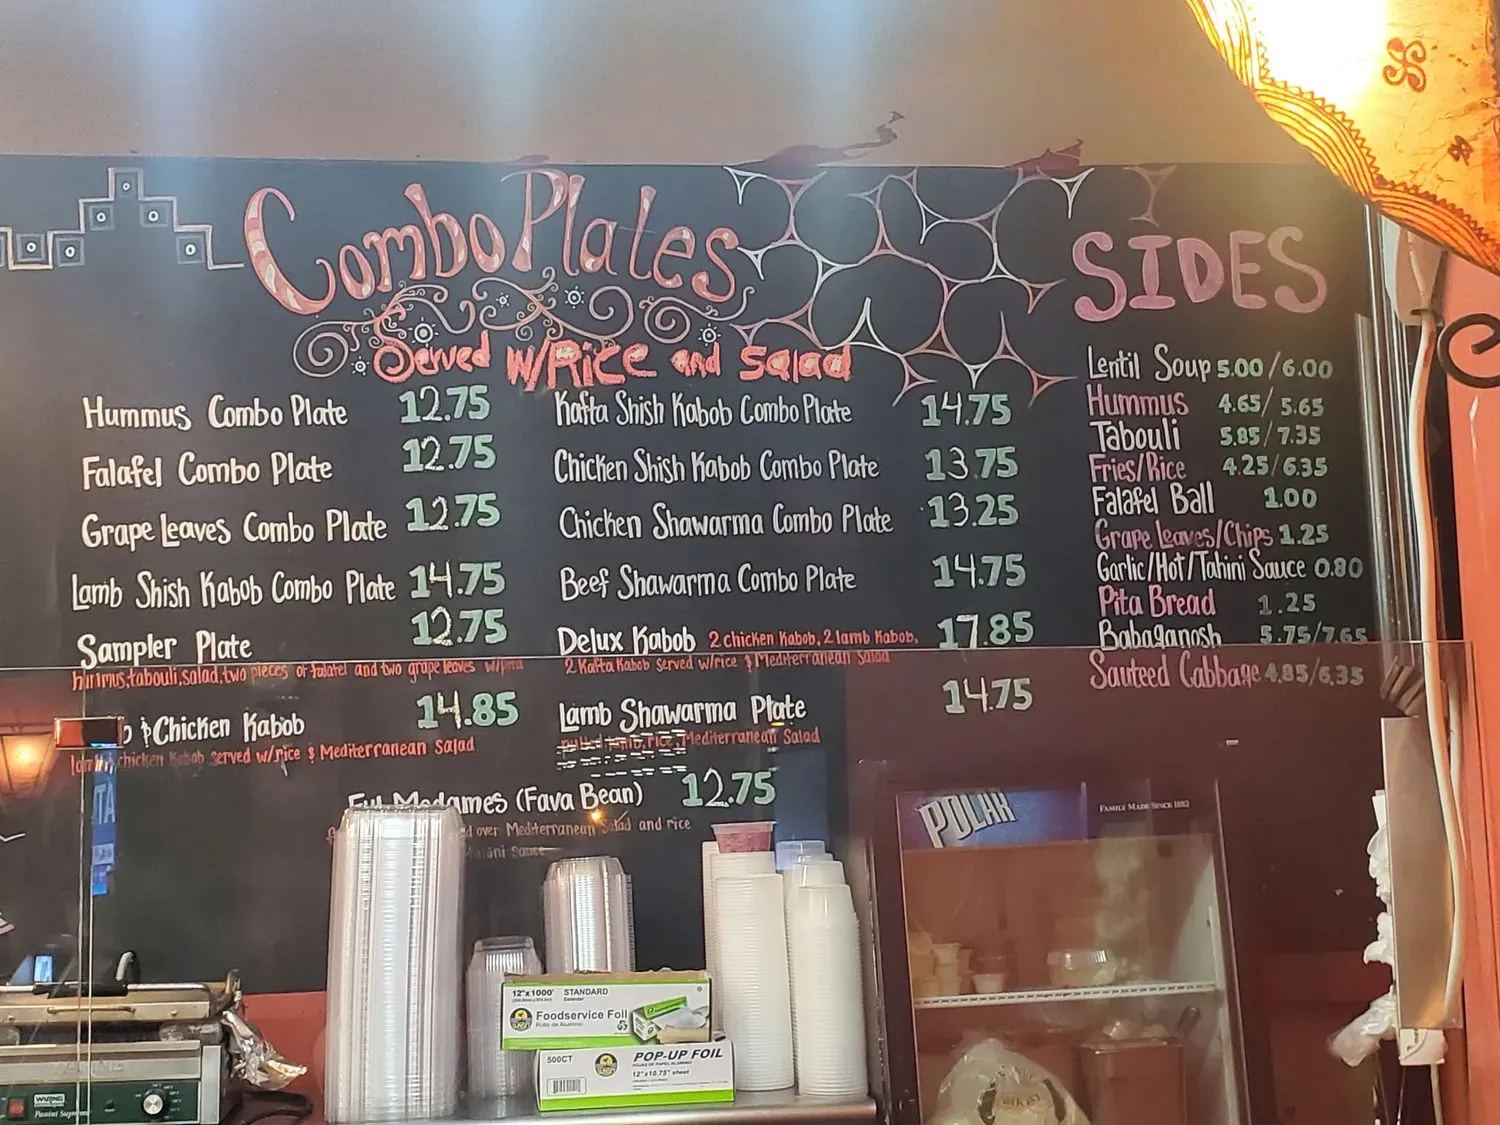 Combo Plates
Served w/Rice and Salad
Hummus Combo Plate 12.75
Falafel Combo Plate 12.75
Grape Leaves Combo Plate 12.75
Lamb Shish Kabob Combo Plate 14.75
Sampler Plate 12.75
hummus, tabouli, salad, two pieces of falafel and two grape leaves w/pita
& Chicken Kabob 14.85
lamb, chicken kabob served w/rice & Mediterranean Salad
Kafta Shish Kabob Combo Plate 14.75
Chicken Shish Kabob Combo Plate 13.75
Chicken Shawarma Combo Plate 13.25
Beef Shawarma Combo Plate 14.75
Delux Kabob 2 chicken Kabob, 2 lamb Kabob, 17.85
2 Kafta Kabob served w/rice & Mediterranean Salad
Lamb Shawarma Plate 14.75
pulled lamb, rice, Mediterranean Salad
Ful Medames (Fava Bean) 12.75
over Mediterranean Salad and rice
Sauce
SIDES
Lentil Soup 5.00/6.00
Hummus 4.65/5.65
Tabouli 5.85/7.35
Fries/Rice 4.25/6.35
Falafel Ball 1.00
Grape Leaves/Chips 1.25
Garlic/Hot/Tahini Sauce 0.80
Pita Bread 1.25
Babaganosh 5.75/7.65
Sauteed Cabbage 4.85/6.35
POLAR
FAMILY MADE SINCE 1882
12"x1000' STANDARD
Estándar
Foodservice Foil
Rollo de Aluminio
500CT
POP-UP FOIL
12"x10.75" sheet
WARING
Panini Supremo